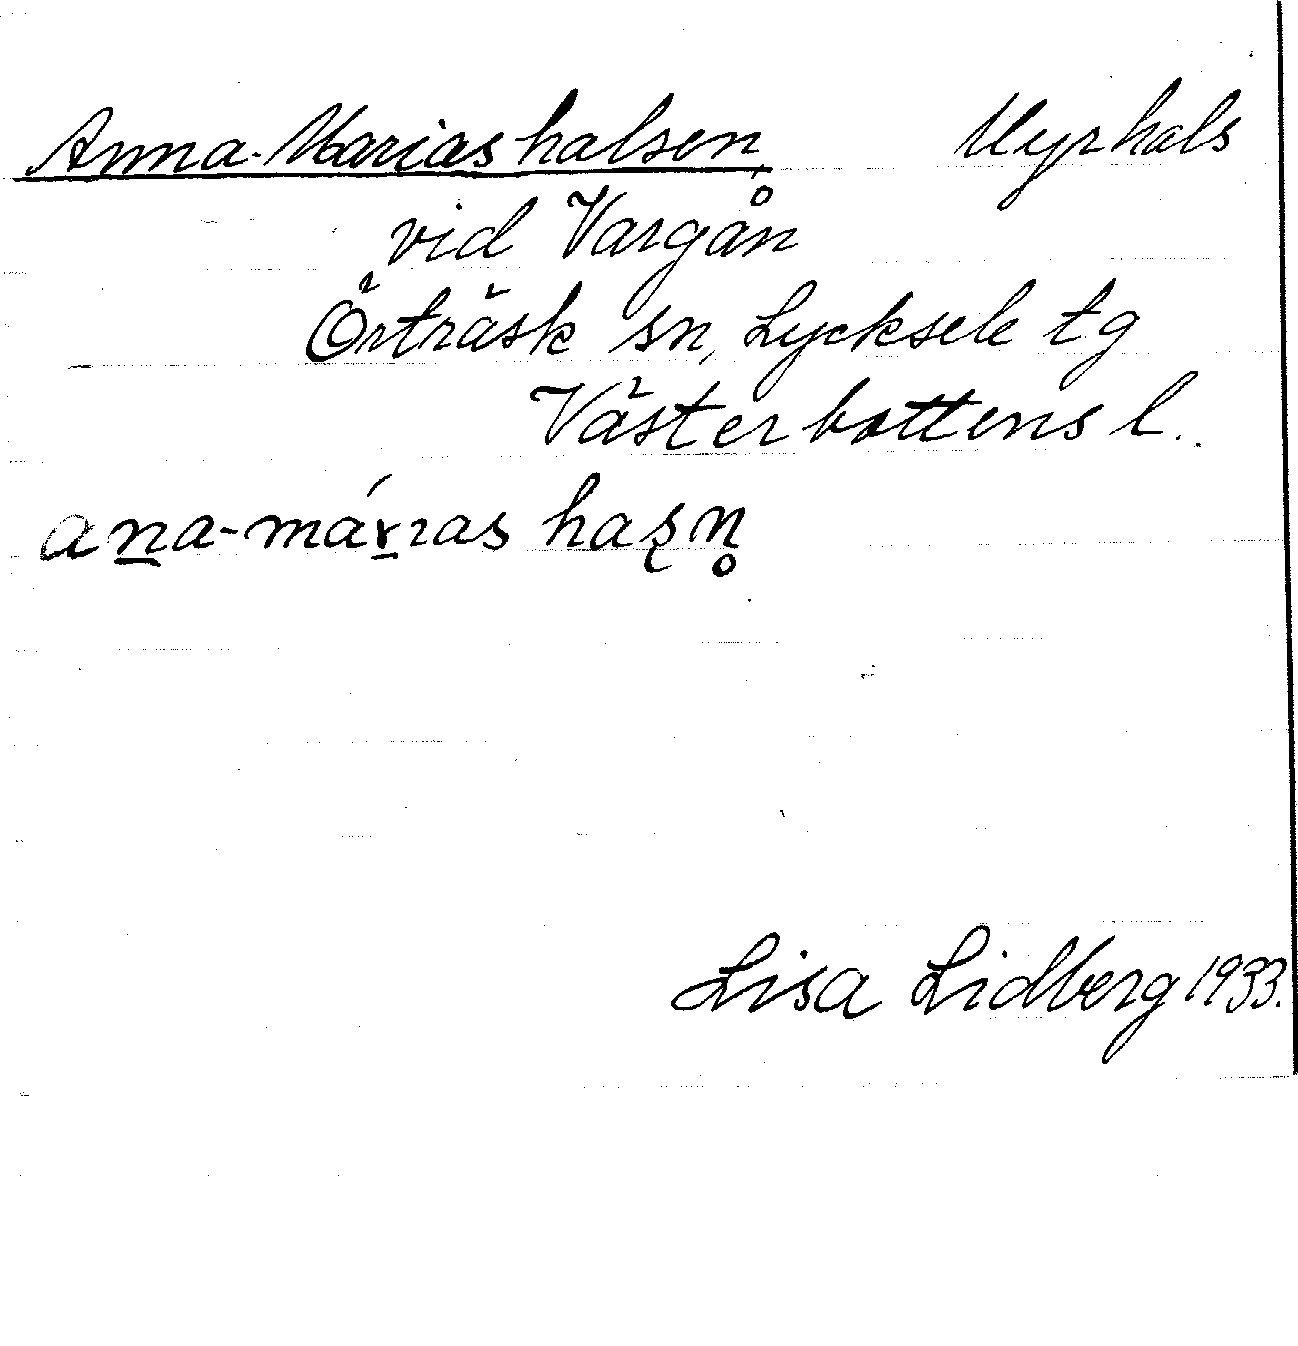 Anna-Marias halsen Myrhals
vid Vargån
Örträsk sn, Lycksele tg
Västerbottens l.
an̠a-már̠ıas haʂn̥
Lisa Lidberg 1933.